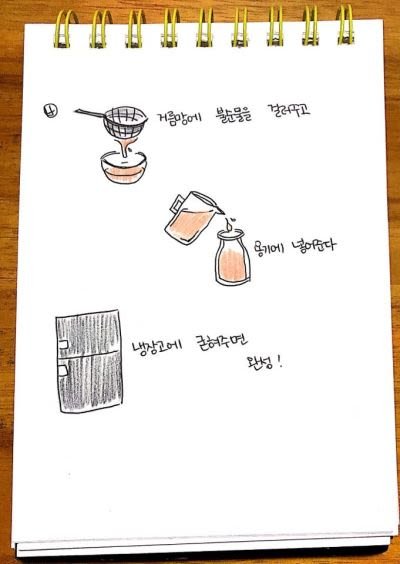 ④ 거름망에 불순물을 걸러주고
용기에 넣어준다
냉장고에 굳혀주면
완성!